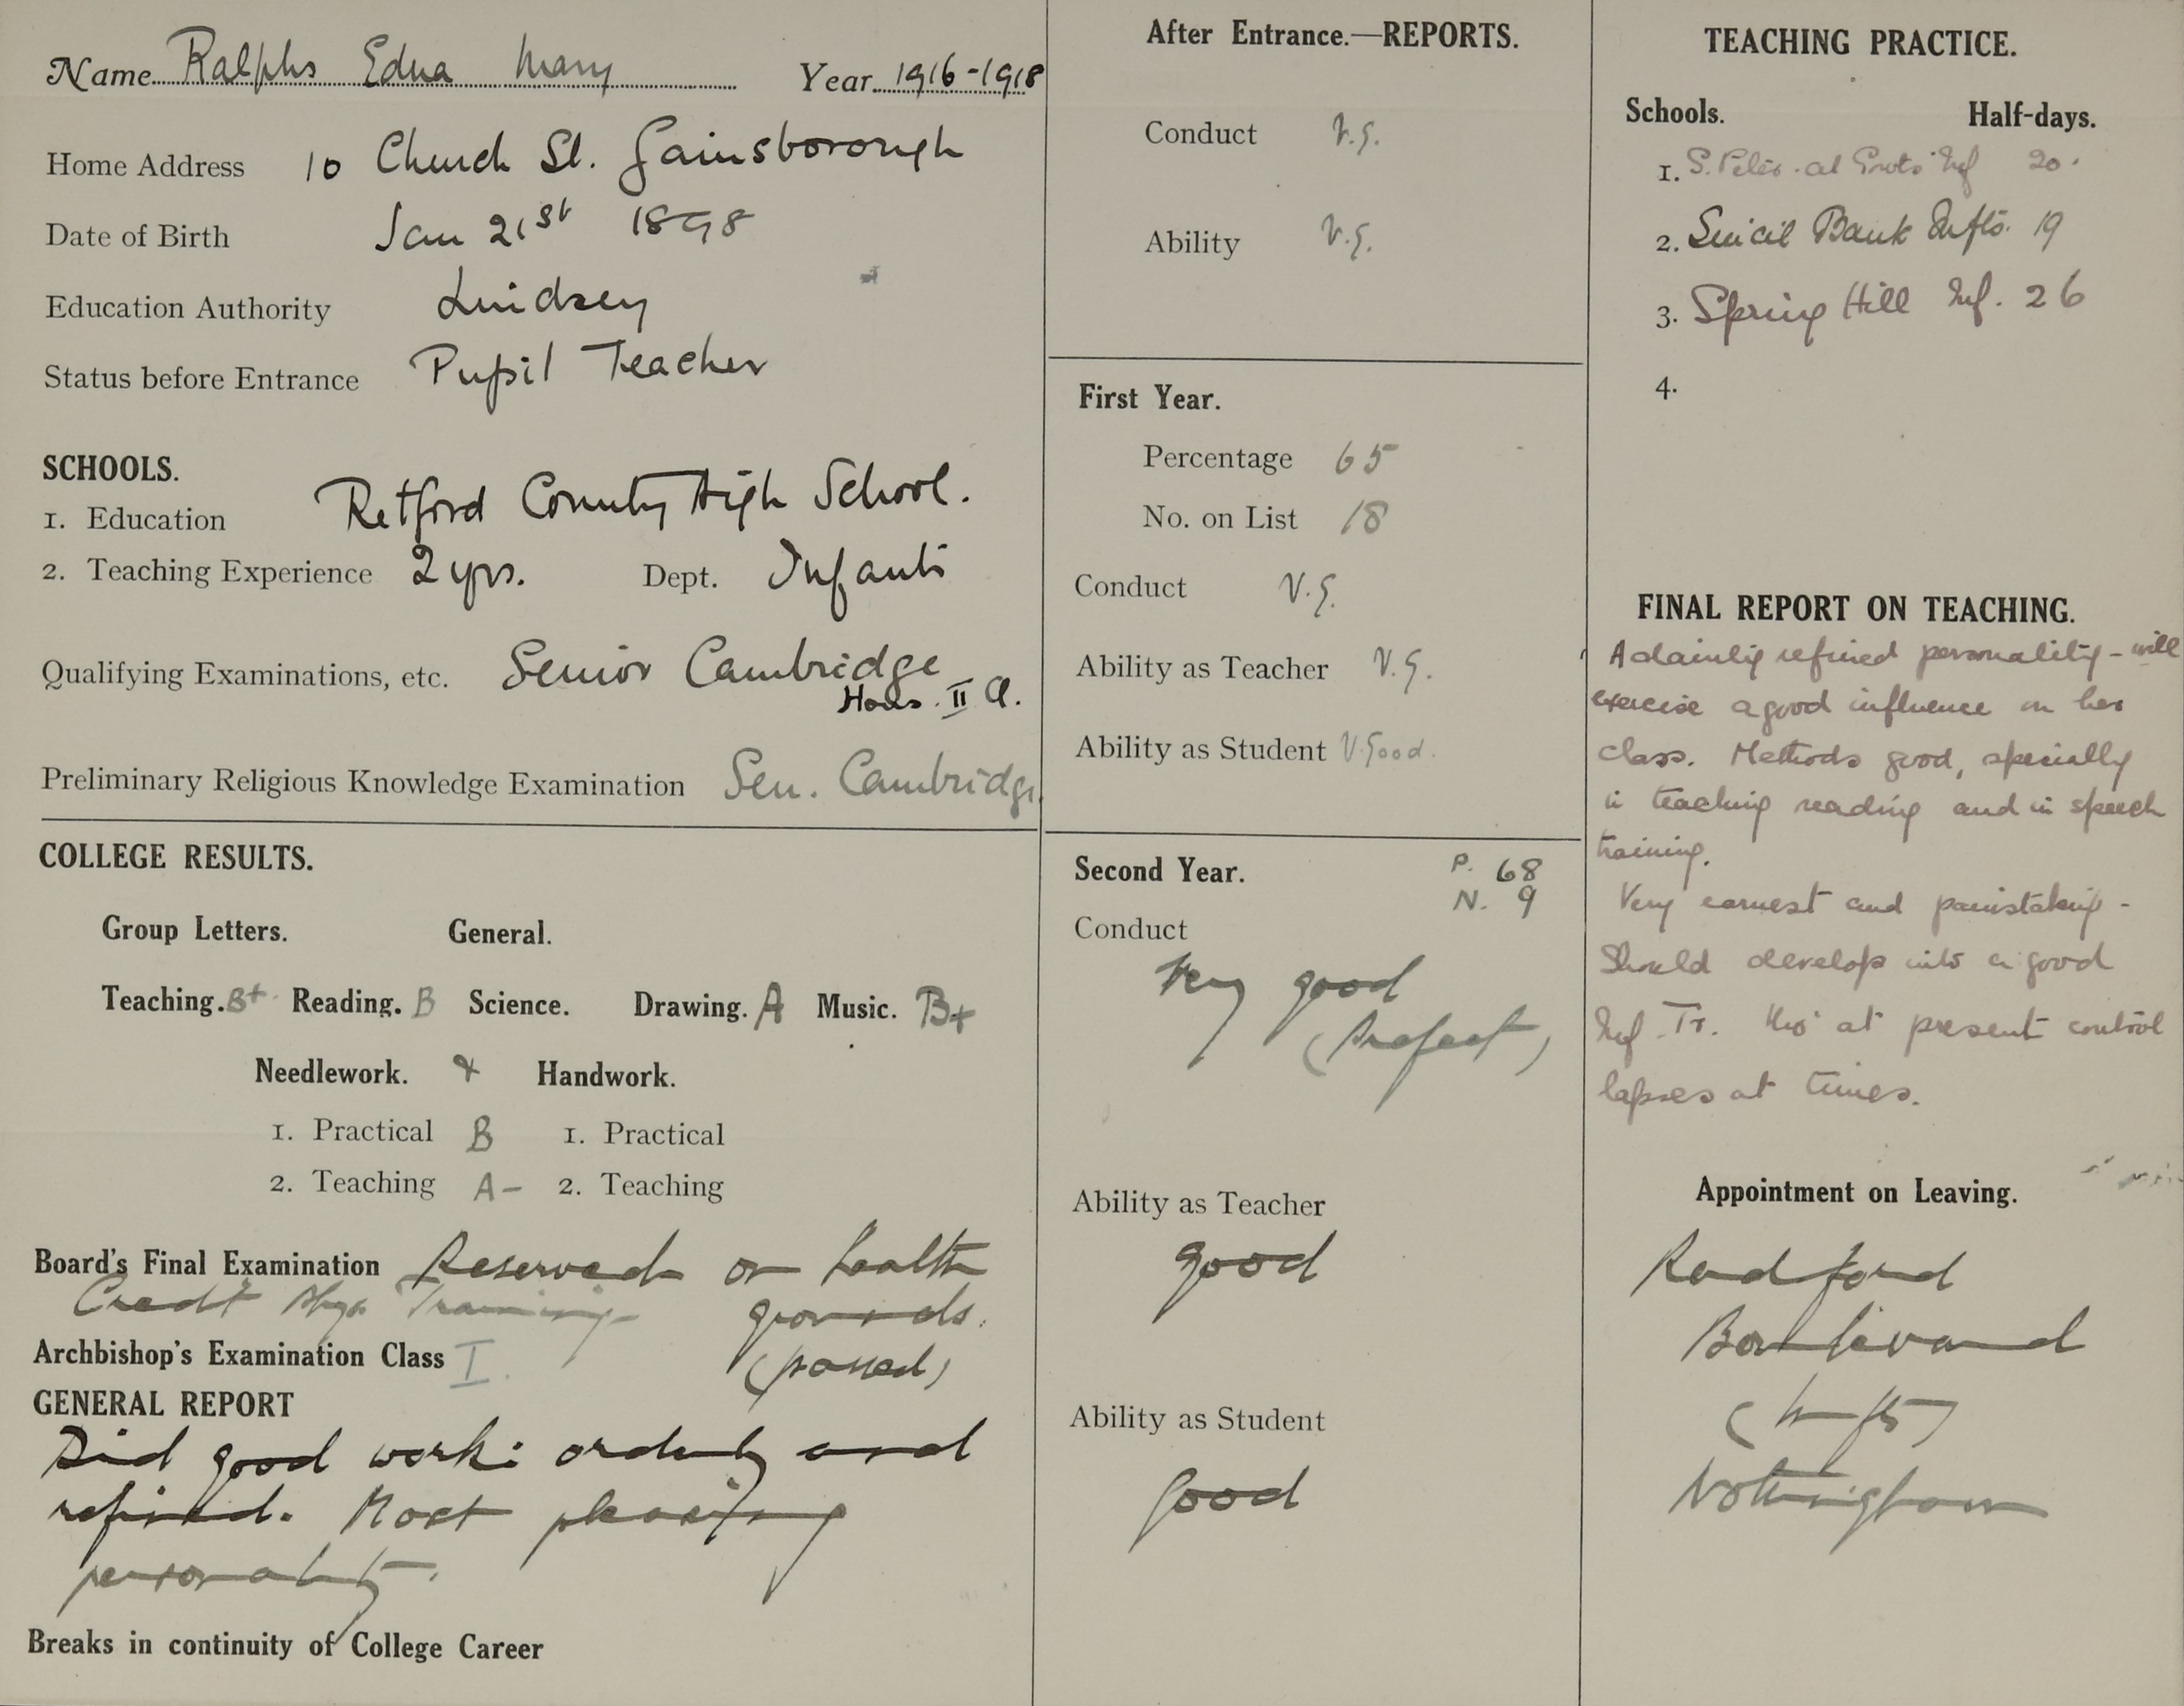 Name Ralphs Edna Mary Year 1916-1918
Home Address 10 Church St. Gainsborough
Date of Birth Jan 21st 1898
Education Authority Lindsey
Status before Entrance Pupil Teacher
SCHOOLS.
1. Education Retford County High School.
2. Teaching Experience 2 yrs. Dept. Infants
Qualifying Examinations, etc. Senior Cambridge
Hons. II Cl.
Preliminary Religious Knowledge Examination Sen. Cambridge
COLLEGE RESULTS.
Group Letters. General.
Teaching. B+ Reading. B Science. Drawing. A Music. B+
Needlework. & Handwork.
1. Practical B 1. Practical
2. Teaching A- 2. Teaching
Board's Final Examination Reserved on health
Credit Hyg. Training grounds.
Archbishop's Examination Class I. (passed)
GENERAL REPORT
Did good work: orderly and
refined. Most pleasing
personality.
Breaks in continuity of College Career
After Entrance.—REPORTS.
Conduct V.G.
Ability V.G.
First Year.
Percentage 65
No. on List 18
Conduct V.G.
Ability as Teacher V.G.
Ability as Student V.Good.
Second Year. P. 68
N. 9
Conduct
Very good
(Prefect)
Ability as Teacher
good
Ability as Student
good
TEACHING PRACTICE.
Schools. Half-days.
1. S. Peter at Inf 20.
2. Sincil Bank Infts. 19
3. Spring Hill Inf. 26
4.
FINAL REPORT ON TEACHING.
A daintily refined personality - will
exercise a good influence on her
class. Methods good, specially
in teaching reading and in speech
training.
Very earnest and painstaking -
Should develop into a good
Inf. Tr. tho' at present control
lapses at times.
Appointment on Leaving.
Radford
Boulevard
(Infts)
Nottingham